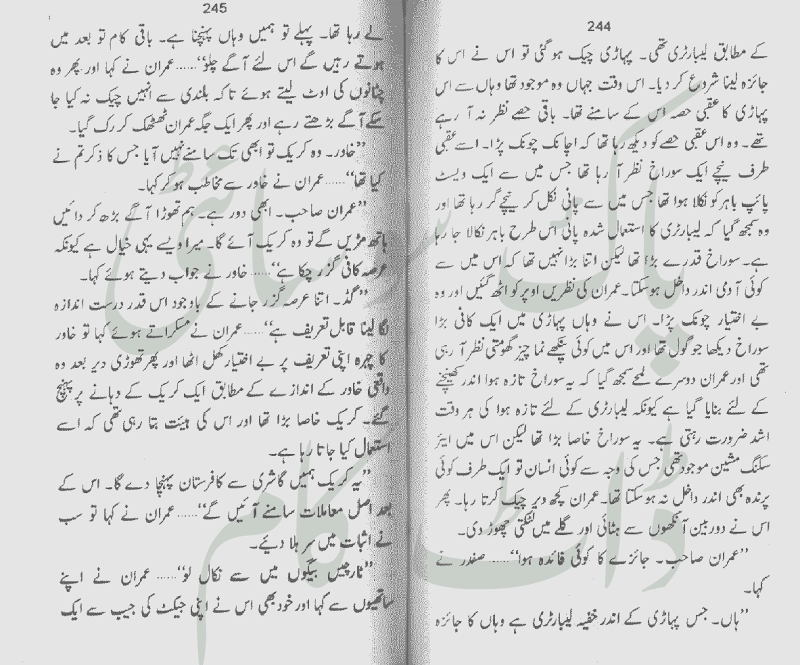 244
کے مطابق لیبارٹری تھی۔ پہاڑی چیک ہو گئی تو اس نے اس کا
جائزہ لینا شروع کر دیا۔ اس وقت جہاں وہ موجود تھا وہاں سے اس
پہاڑی کا عقبی حصہ اس کے سامنے تھا۔ باقی حصے نظر نہ آ رہے
تھے۔ وہ اس عقبی حصے کو دیکھ رہا تھا کہ اچانک چونک پڑا۔ اسے عقبی
طرف نیچے ایک سوراخ نظر آ رہا تھا جس میں سے ایک ویسٹ
پائپ باہر کو نکلا ہوا تھا جس میں سے پانی نکل کر نیچے گر رہا تھا اور
وہ سمجھ گیا کہ لیبارٹری کا استعمال شدہ پانی اس طرح باہر نکالا جا رہا
ہے۔ سوراخ قدرے بڑا تھا لیکن اتنا بڑا نہیں تھا کہ اس میں سے
کوئی آدمی اندر داخل ہو سکتا۔ عمران کی نظریں اوپر کو اٹھ گئیں اور وہ
بے اختیار چونک پڑا۔ اس نے وہاں پہاڑی میں ایک کافی بڑا
سوراخ دیکھا جو گول تھا اور اس میں کوئی پنکھے نما چیز گھومتی نظر آ رہی
تھی اور عمران دوسرے لمحے سمجھ گیا کہ یہ سوراخ تازہ ہوا اندر کھینچنے
کے لئے بنایا گیا ہے کیونکہ لیبارٹری کے لئے تازہ ہوا کی ہر وقت
اشد ضرورت رہتی ہے۔ یہ سوراخ خاصا بڑا تھا لیکن اس میں ایئر
سکنگ مشین موجود تھی جس کی وجہ سے کوئی انسان تو ایک طرف کوئی
پرندہ بھی اندر داخل نہ ہو سکتا تھا۔ عمران کچھ دیر چیک کرتا رہا۔ پھر
اس نے دوربین آنکھوں سے ہٹائی اور گلے میں لٹکتی چھوڑ دی۔
’’عمران صاحب۔ جائزے کا کوئی فائدہ ہوا‘‘...... صفدر نے
کہا۔
’’ہاں۔ جس پہاڑی کے اندر خفیہ لیبارٹری ہے وہاں کا جائزہ
245
لے رہا تھا۔ پہلے تو ہمیں وہاں پہنچنا ہے۔ باقی کام تو بعد میں
ہوتے رہیں گے اس لئے آگے چلو‘‘...... عمران نے کہا اور پھر وہ
چٹانوں کی اوٹ لیتے ہوئے تاکہ بلندی سے انہیں چیک نہ کیا جا
سکے آگے بڑھتے رہے اور پھر ایک جگہ عمران ٹھٹھک کر رک گیا۔
’’خاور۔ وہ کریک تو ابھی تک سامنے نہیں آیا جس کا ذکر تم نے
کیا تھا‘‘...... عمران نے خاور سے مخاطب ہو کر کہا۔
’’عمران صاحب۔ ابھی دور ہے۔ ہم تھوڑا آگے بڑھ کر دائیں
ہاتھ مڑیں گے تو وہ کریک آئے گا۔ میرا ویسے یہی خیال ہے کیونکہ
عرصہ کافی گزر چکا ہے‘‘...... خاور نے جواب دیتے ہوئے کہا۔
’’گڈ۔ اتنا عرصہ گزر جانے کے باوجود اس قدر درست اندازہ
لگا لینا قابل تعریف ہے‘‘...... عمران نے مسکراتے ہوئے کہا تو خاور
کا چہرہ اپنی تعریف پر بے اختیار کھل اٹھا اور پھر تھوڑی دیر بعد وہ
واقعی خاور کے اندازے کے مطابق ایک کریک کے دہانے پر پہنچ
گئے۔ کریک خاصا بڑا تھا اور اس کی ہیئت بتا رہی تھی کہ اسے
استعمال کیا جاتا رہا ہے۔
’’یہ کریک ہمیں گاشری سے کافرستان پہنچا دے گا۔ اس کے
بعد اصل معاملات سامنے آئیں گے‘‘...... عمران نے کہا تو سب
نے اثبات میں سر ہلا دیئے۔
’’ٹارچیں بیگوں میں سے نکال لو‘‘...... عمران نے اپنے
ساتھیوں سے کہا اور خود بھی اس نے اپنی جیکٹ کی جیب سے ایک